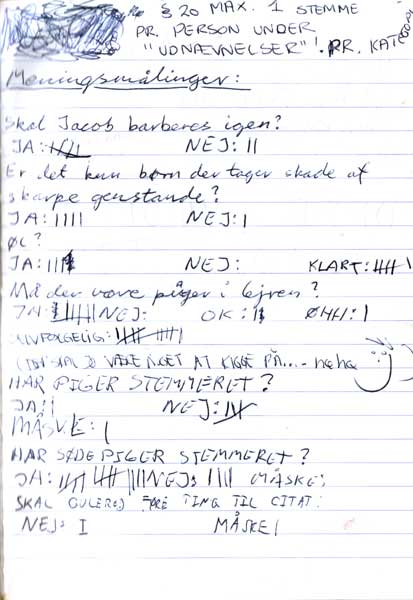 § 20 MAX. 1 STEMME
PR. PERSON UNDER
"UDNÆVNELSER"! PR. KATEGORI
Meningsmålinger:
Skal Jacob barberes igen?
JA: NEJ: II
Er det kun børn der tager skade af
skarpe genstande?
JA: IIII NEJ: I
ØL?
JA: NEJ: KLART:
Må der være piger i lejren?
JA: NEJ: OK: ØHH: I
SELVFØLGELIG:
NOGET AT KIGGE PÅ... - hehe
HAR PIGER STEMMERET?
JA: NEJ:
MÅSKE: I
HAR SØDE PIGER STEMMERET?
JA: NEJ: IIII MÅSKE:
SKAL TING TIL CITAT:
NEJ: I MÅSKE I